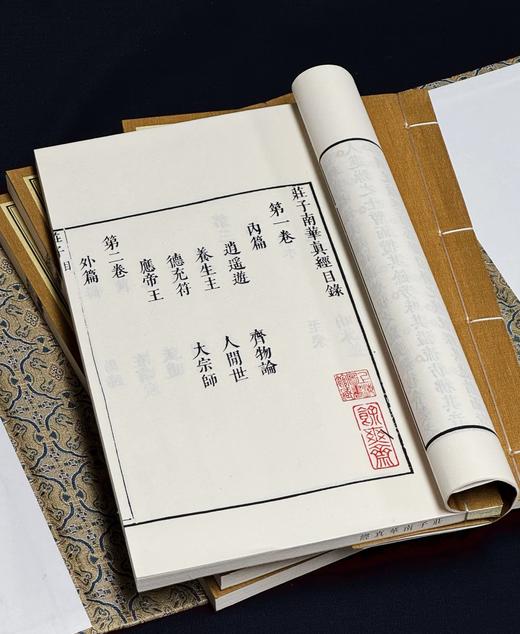 莊子南華真經目錄
第一卷
內篇
逍遙遊 齊物論
養生主 人間世
德充符 大宗師
應帝王
第二卷
外篇
莊子 目
莊子南華真經